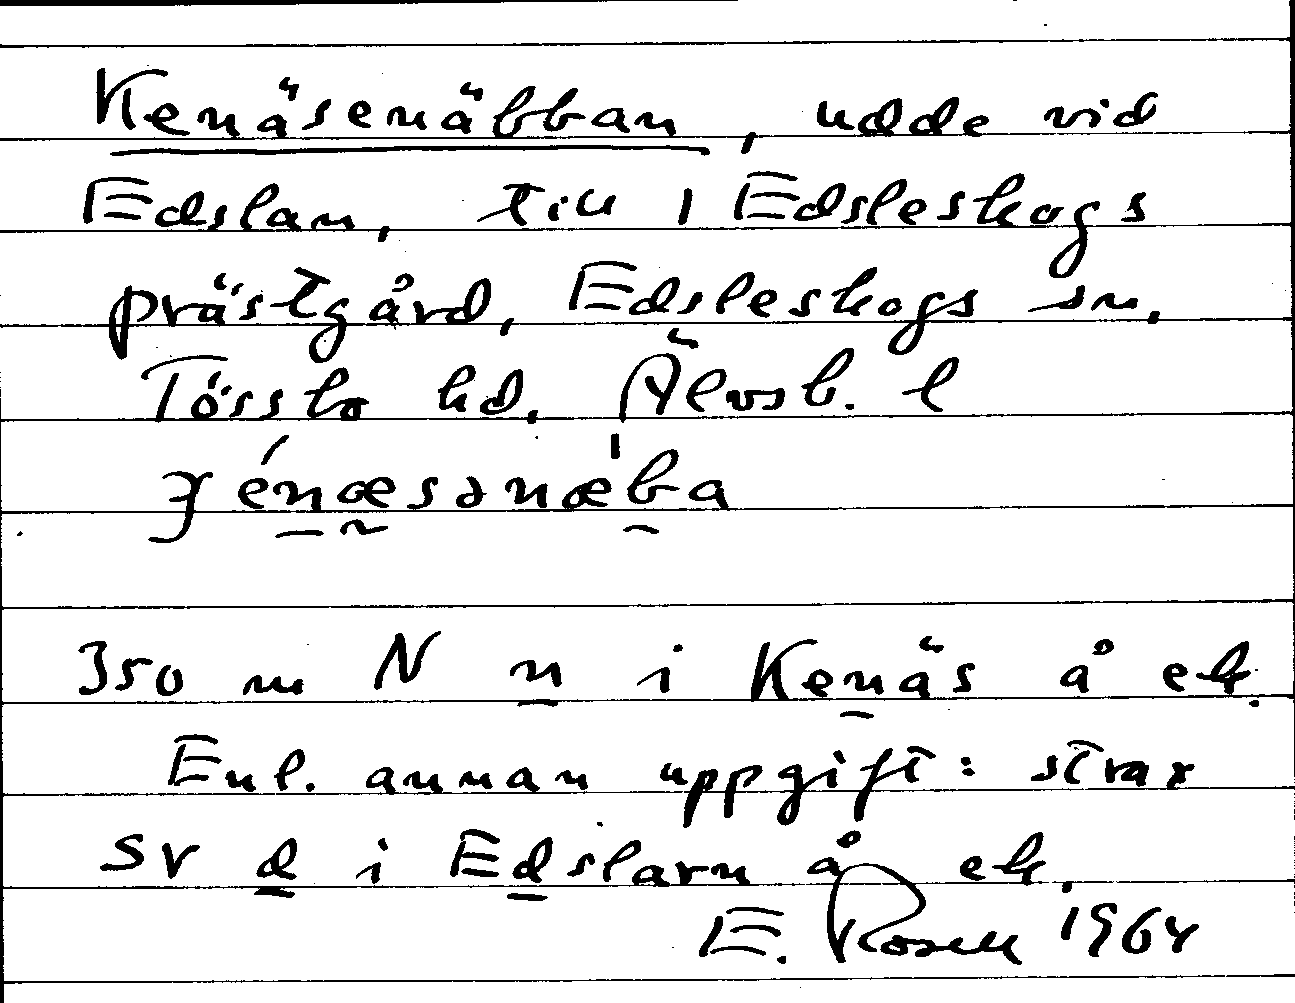 Kenäsenäbban, udde vid
Edslan, till 1 Edsleskogs
prästgård, Edsleskogs sn,
Tössbo hd. Älvsb. l
ɟénæsənæ̍ba
350 m N n i Kenäs å ek.
Enl. annan uppgift: strax
SV d i Edslarn å ek.
E. Rosell 1964